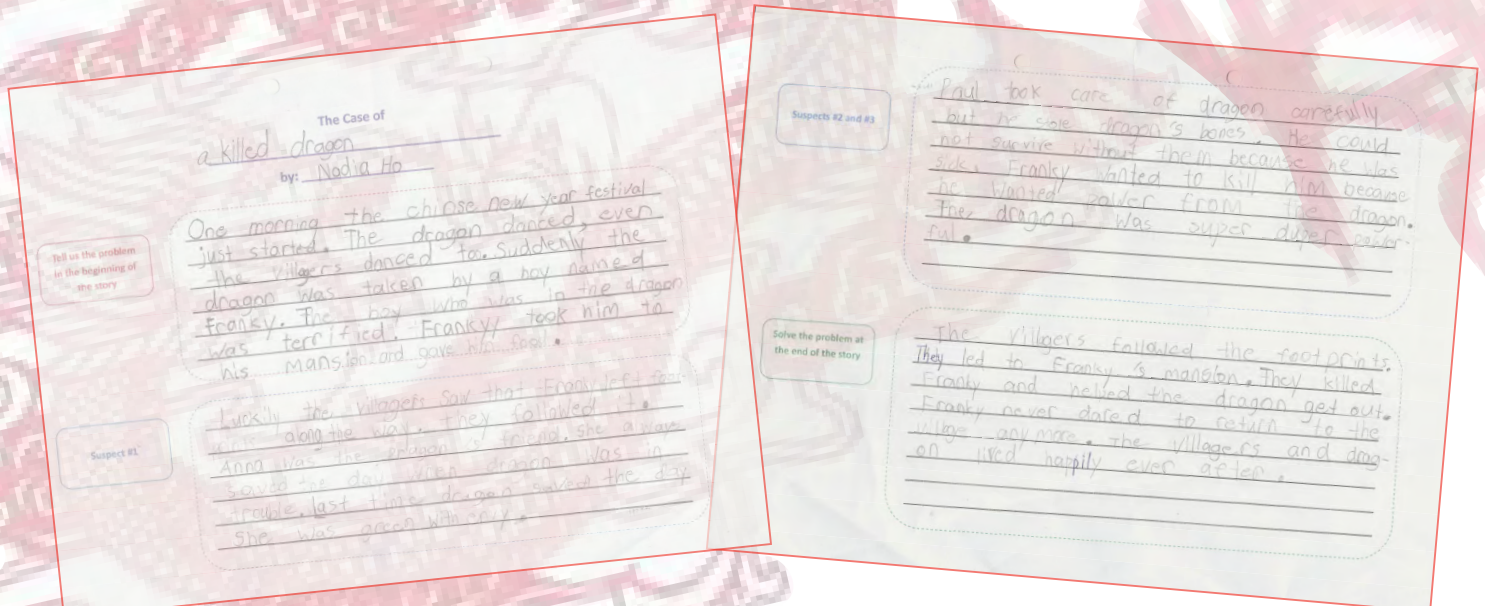 The Case of
a killed dragon
by: Nadia Ho
Tell us the problem
in the beginning of
the story
One morning the chinse new year festival
just started. The dragon danced, even
the villagers danced to. Suddenly the
dragon was taken by a boy named
Franky. The boy who was in the dragon
was terrified. Franky took him to
his mansion and gave him
Suspect #1
Luckily the villagers saw that Franky left
along the way. They followed it.
Anna was the dragon's friend. She
saved the day when dragon was in
trouble. last time dragon saved the day
she was green with envy.
Suspects #2 and #3
Paul took care of dragon carefully
but he stole dragon's bones. He could
not survive without them because he was
sick. Franky wanted to kill him because
he wanted power from the dragon.
The dragon was super duper power-
ful.
Solve the problem at
the end of the story
The villagers followed the footprints.
They led to Franky's mansion. They killed
Franky and helped the dragon get out.
Franky never dared to return to the
village anymore. The villagers and drag-
on lived happily ever after.